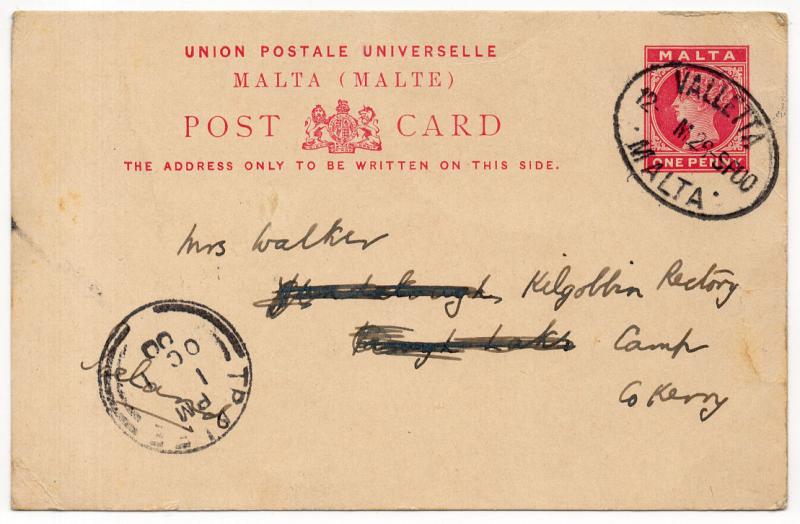 UNION POSTALE UNIVERSELLE
MALTA (MALTE)
POST CARD
THE ADDRESS ONLY TO BE WRITTEN ON THIS SIDE.
MALTA
ONE PENNY
VALLETTA
12 M 29 SP 00
MALTA
Mrs Walker
Kilgobbin Rectory
Camp
Co Kerry
Ireland
OC 1 00
PM